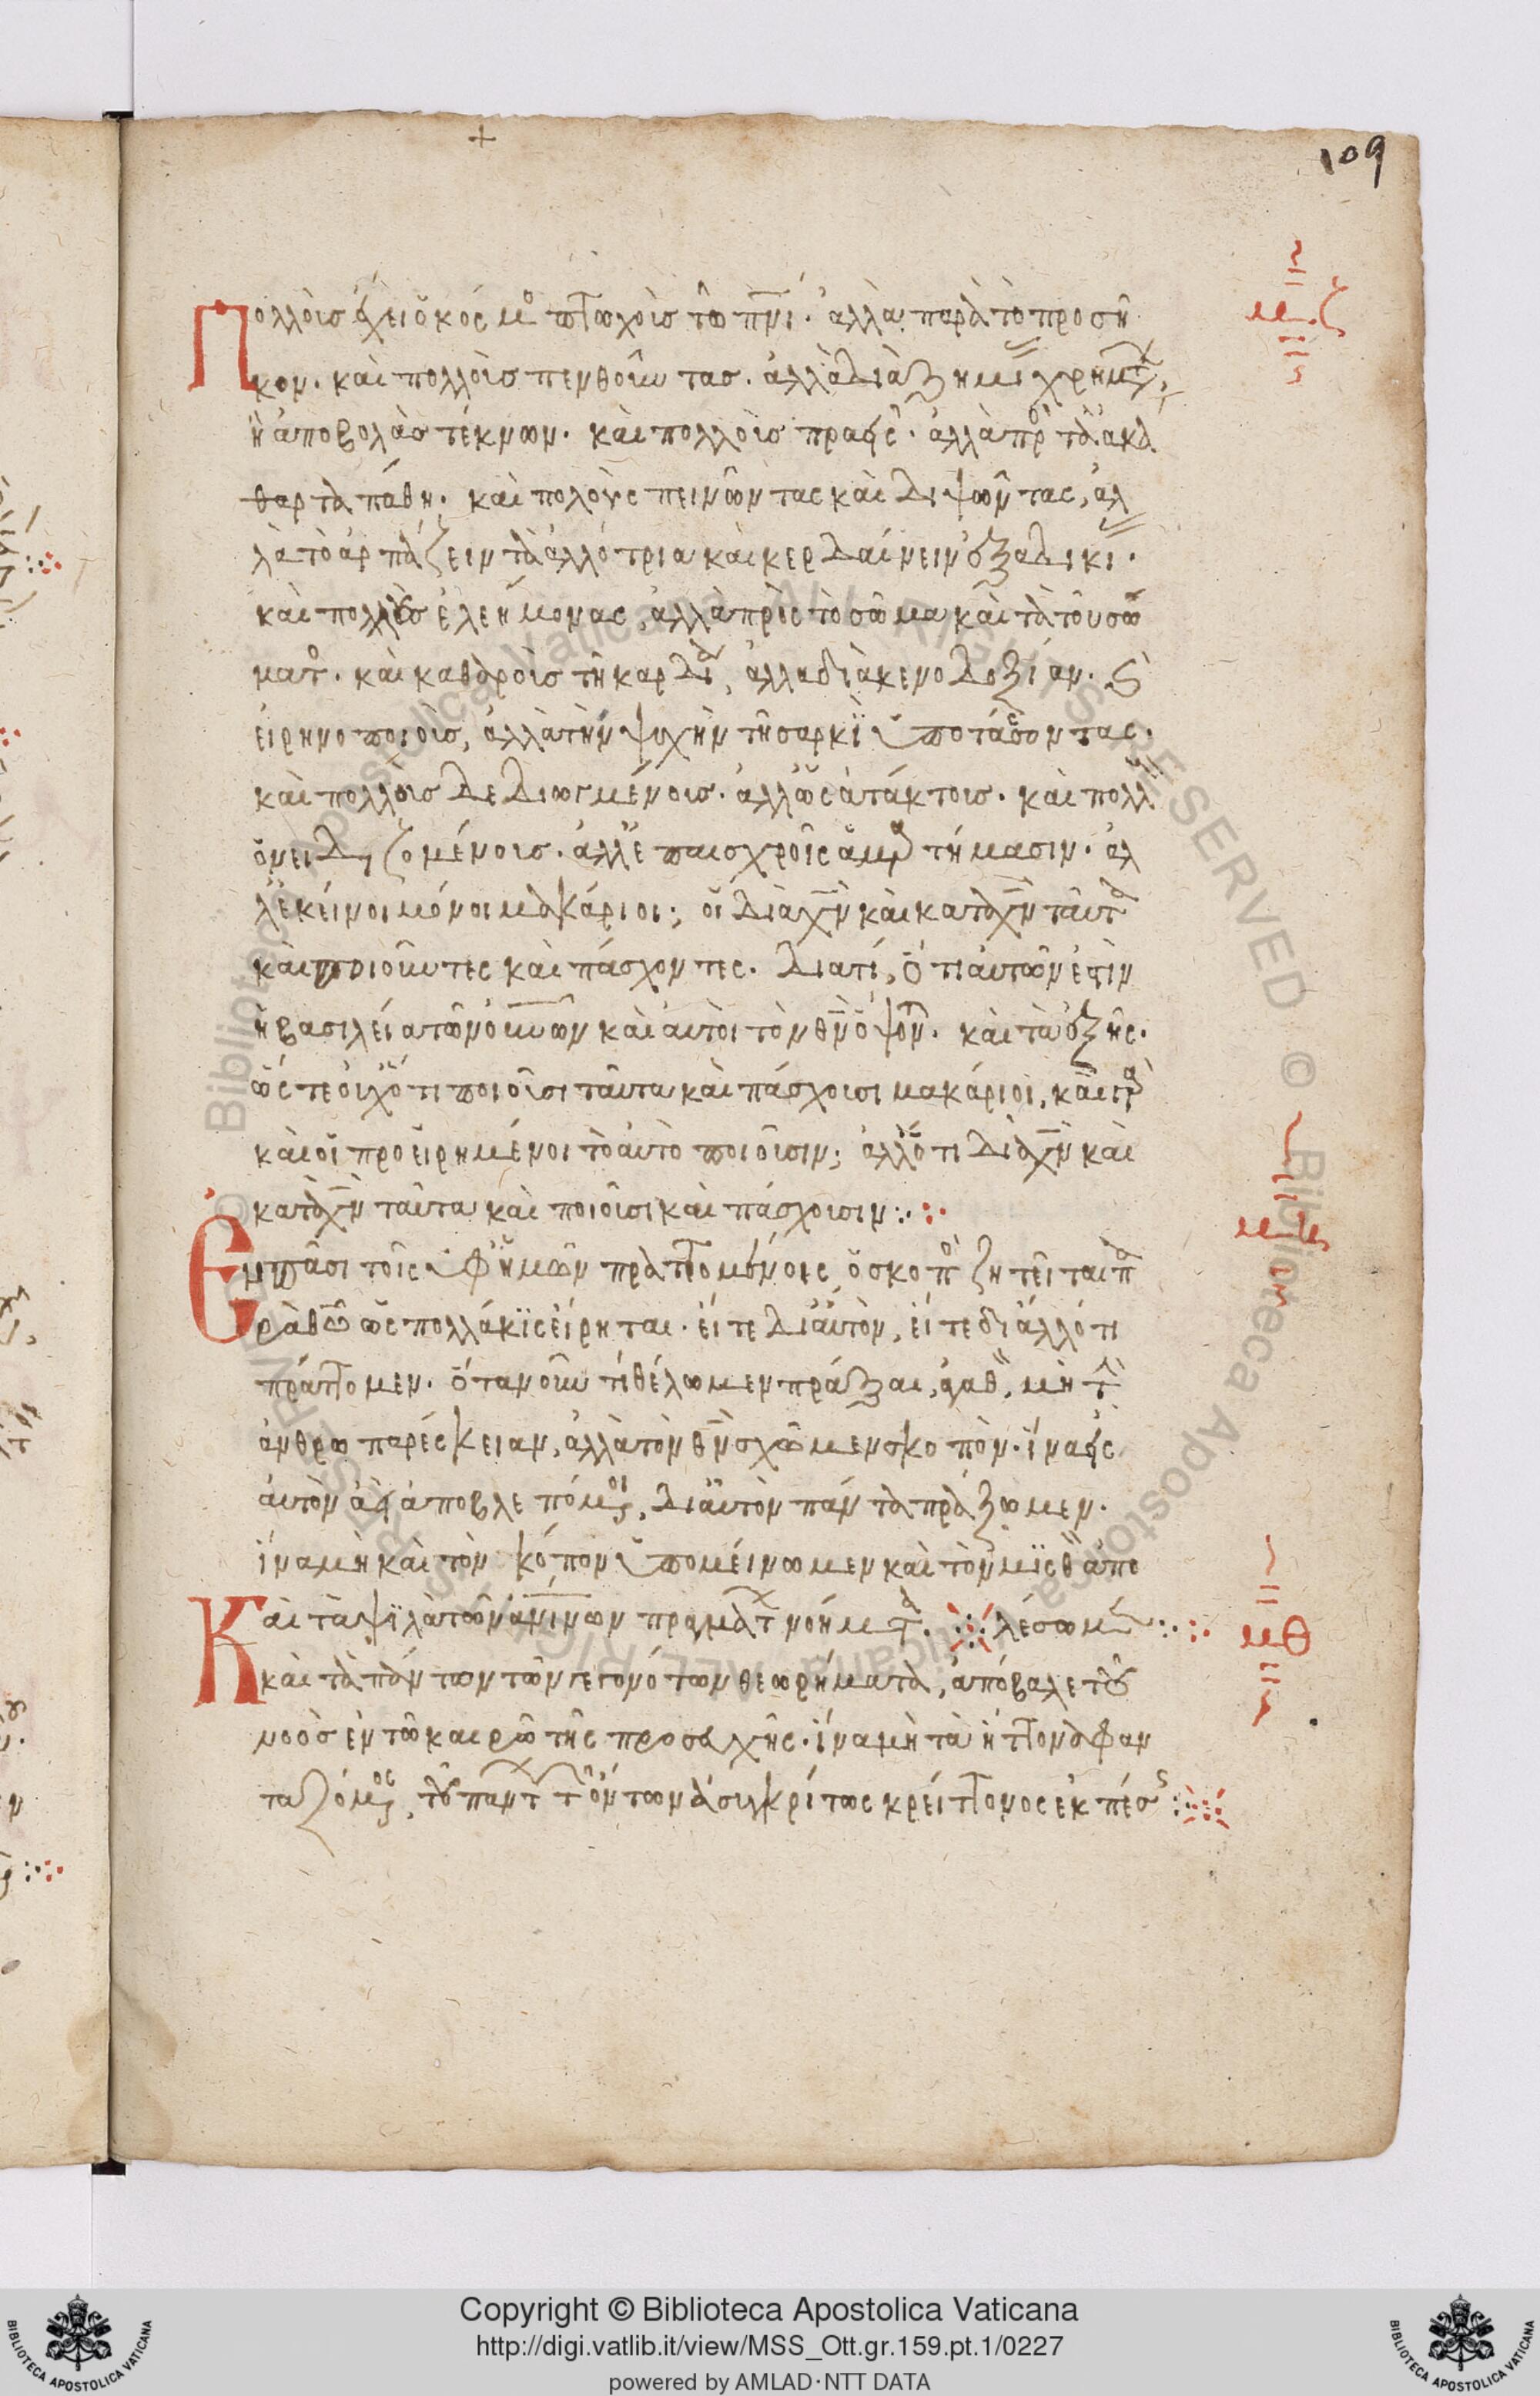 109
Πολλοὺς ἔχει ὁ κόσμο πτωχοὺς τῶ πνι· ἀλλὰ παρὰ τὸ προσῆ
κον· καὶ πολλοὺς πενθοῦντας· ἀλλὰ διὰ ζημι χρημτ,
ἢ ἀποβολὰς τέκνων· καὶ πολλοὺς πραεῖς· ἀλλὰ πρ τὰ ἀκά
θαρτα πάθη· καὶ πολοὺς πεινῶντας καὶ διψῶντας, ἀλ
λὰ τὸ ἁρπάζειν τὰ ἀλλότρια καὶ κερδαίνειν ἐξ ἀδικι·
καὶ πολλοὺς ἐλεήμονας, ἀλλὰ πρὸς τὸ σῶμα καὶ τὰ τοῦ σώ
ματο· καὶ καθαροὺς τῆ καρδία, ἀλλα διὰ κενοδοξίαν· καὶ
εἰρηνοποιοὺς, ἀλλὰ τὴν ψυχὴν τῆ σαρκὶ ὑποτάσσοντας·
καὶ πολλοὺς δεδιωγμένους· ἀλλ' ὡς ἀτάκτους· καὶ πολλ
ὀνειδιζομένους· ἀλλ' ἐπ' αἰσχροῖς ἁμαρτήμασιν· ἀλ
λ' ἐκεῖνοι μόνοι μακάριοι; οἱ διὰ χν καὶ κατὰ χν ταῦτα
καὶ ποιοῦντες καὶ πάσχοντες. διατί, ὅτι αὐτῶν ἐστὶν
ἡ βασιλεία τῶν οὐνων καὶ αὐτοὶ τὸν θν ὄψον. καὶ τὰ ἑξῆς·
ὥστε οὐχ ὅτι ποιοῦσι ταῦτα καὶ πάσχουσι μακάριοι, καὶ γὰρ
καὶ οἱ προειρημένοι τὸ αὐτὸ ποιοῦσιν; ἀλλ' ὅτι διὰ χν καὶ
κατὰ χν ταῦτα καὶ ποιοῦσι καὶ πάσχουσιν:
μζ
Ἐν πᾶσι τοῖς ὑφ' ἡμῶν πραττομένοις ὁ σκοπὸ ζητεῖται πα
ρὰ θῶ ὡς πολλάκις εἴρηται· εἴτε δι' αὐτὸν, εἴτε δι' ἄλλό τι
πράττομεν· ὅταν οὖν τὶ θέλωμεν πράξαι ἀγαθ, μὴ τὴν
ἀνθρωπαρέσκειαν, ἀλλὰ τὸν θν σχῶμεν σκοπόν· ἵνα εἰς
αὐτὸν ἀεὶ ἀποβλεπόμοι, δι' αὐτὸν πάντα πράξωμεν·
ἵνα μὴ καὶ τὸν κόπον ὑπομείνωμεν καὶ τὸν μισθὸ ἀπο
λέσωμεν:
μη
Καὶ τὰ ψιλὰ τῶν ἀνινων πραγμάτ νοήματα·
καὶ τὰ πάντων τῶν γεγονότων θεωρήματα, ἀπόβαλε τοῦ
νοὸς ἐν τῶ καιρῶ τῆς προσευχῆς· ἵνα μὴ τὰ ἥττονα φαν
ταζόμος, τοῦ πάντ τ ὄντων ἀσυγκρίτως κρείττονος ἐκπέσ:
μθ
Copyright © Biblioteca Apostolica Vaticana
http://digi.vatlib.it/view/MSS_Ott.gr.159.pt.1/0227
powered by AMLAD·NTT DATA